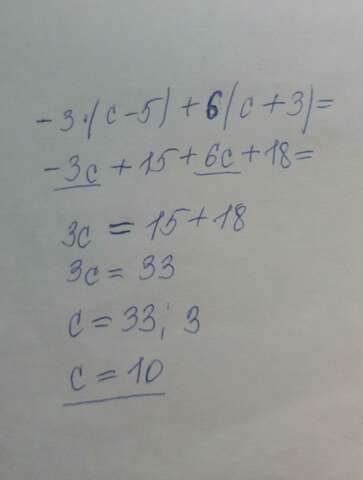 -3·(c-5)+6(c+3)=
-3c+15+6c+18=
3c=15+18
3c=33
c=33:3
c=10